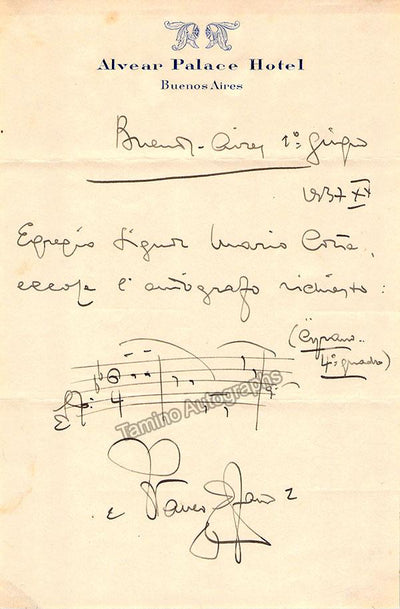 Alvear Palace Hotel
Buenos Aires
Buenos-Aires 1º: giugno
1937 XV
Egregio Signor Mario Cotta,
eccole l'autografo richiesto:
(Cyrano..
4º: quadro)
6
4
Tamino Autographs
Franco Alfano